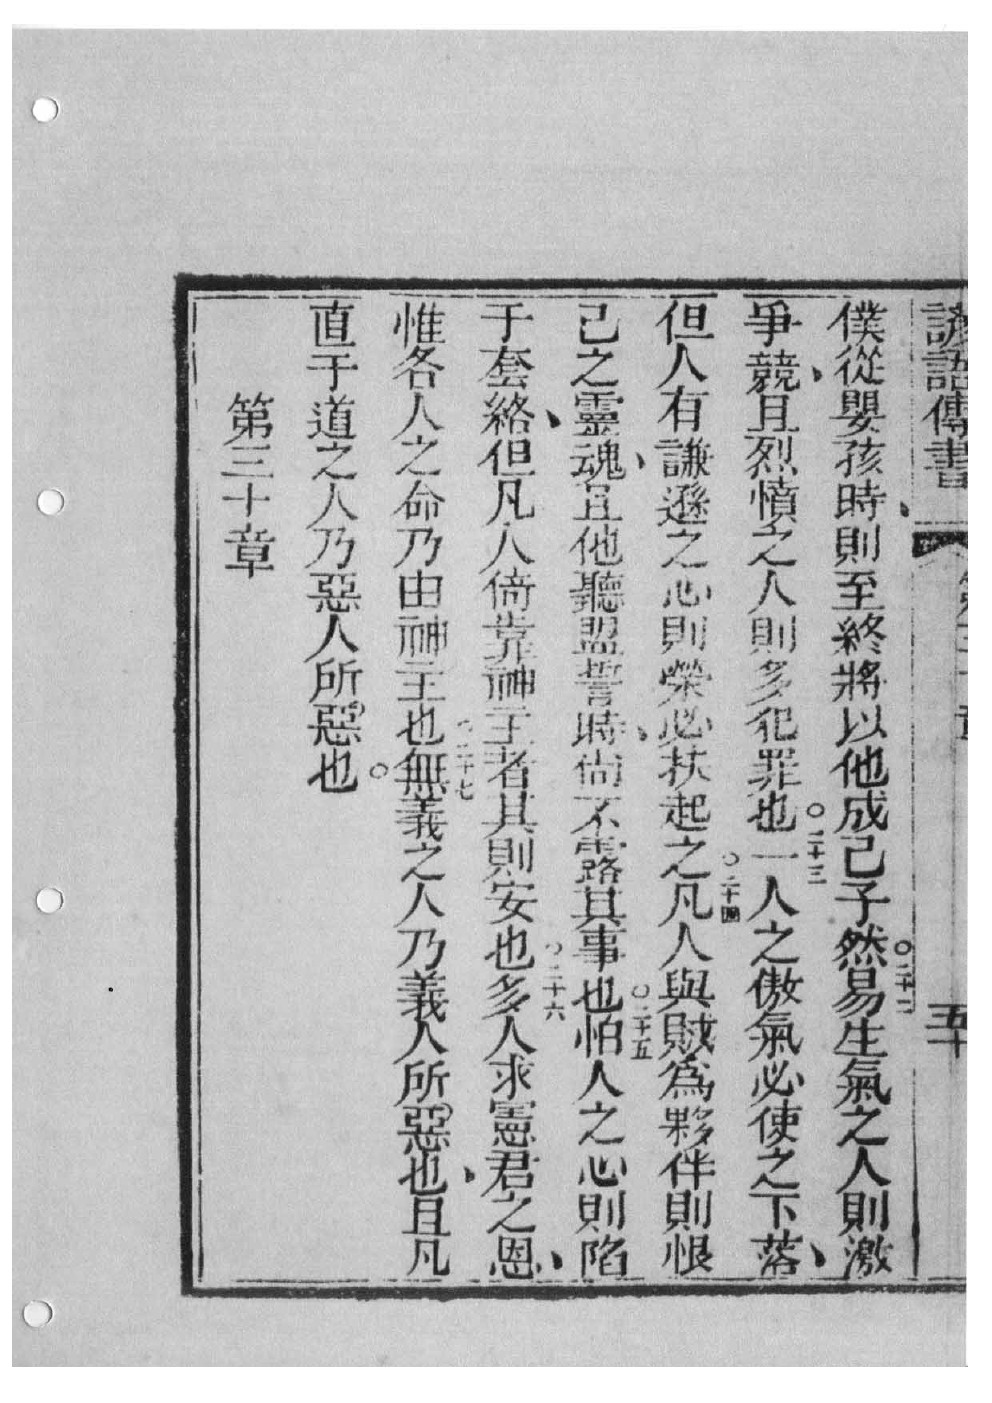 諺語傳書 五十
僕從嬰孩時、則至終將以他成己子○二十二然易生氣之人則激
爭競、且烈憤之人則多犯罪也○二十三一人之傲氣必使之下落、
但人有謙遜之心則榮必扶起之○二十四凡人與賊為夥伴則恨
己之靈魂、且他聽盟誓時、尚不露其事也○二十五怕人之心則陷
于套絡、但凡人倚靠神主者其則安也○二十六多人求憲君之恩、
惟各人之命乃由神主也○二十七無義之人乃義人所惡也、且凡
直于道之人乃惡人所惡也○
第三十章